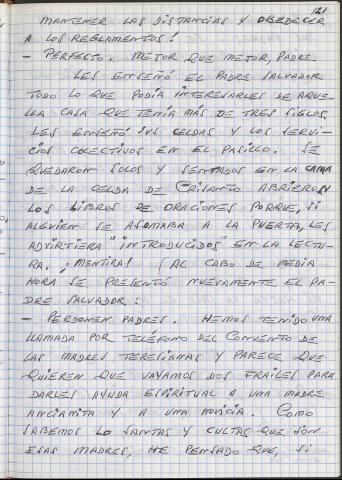 121
MANTENER LAS DISTANCIAS Y OBEDECER
A LOS REGLAMENTOS!
- PERFECTO. MEJOR QUE MEJOR, PADRE.
LES ENSEÑÓ EL PADRE SALVADOR
TODO LO QUE PODÍA INTERESARLES DE AQUE-
LLA CASA QUE TENÍA MÁS DE TRES SIGLOS.
LES ENSEÑÓ SUS CELDAS Y LOS SERVI-
CIOS COLECTIVOS EN EL PASILLO. SE
QUEDARON SOLOS Y SENTADOS EN LA CAMA
DE LA CELDA DE CRISANTO ABRIERON
LOS LIBROS DE ORACIONES PORQUE, SI
ALGUIEN SE ASOMABA A LA PUERTA, LES
ADVIRTIERA "INTRODUCIDOS" EN LA LECTU-
RA. ¡MENTIRA! (AL CABO DE MEDIA
HORA SE PRESENTÓ NUEVAMENTE EL PA-
DRE SALVADOR:
- PERDONEN PADRES. HEMOS TENIDO UNA
LLAMADA POR TELÉFONO DEL CONVENTO DE
LAS MADRES TERESIANAS Y PARECE QUE
QUIEREN QUE VAYAMOS DOS FRAILES PARA
DARLES AYUDA ESPIRITUAL A UNA MADRE
ANCIANITA Y A UNA NOVICIA. COMO
SABEMOS LO SANTAS Y CULTAS QUE SON
ESAS MADRES, HE PENSADO QUE, SI